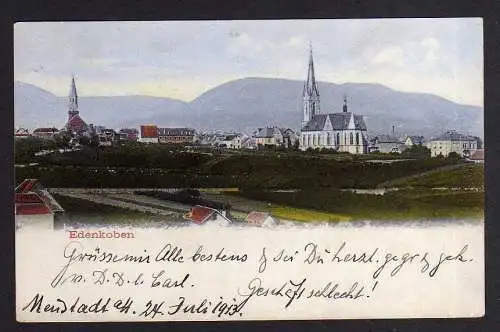 Edenkoben
Grüsse mir Alle bestens & sei Du herzl. gegr & gek.
v. D. D. lb Carl.
Geschlecht!
Neustadt a/H. 24. Juli 1913.